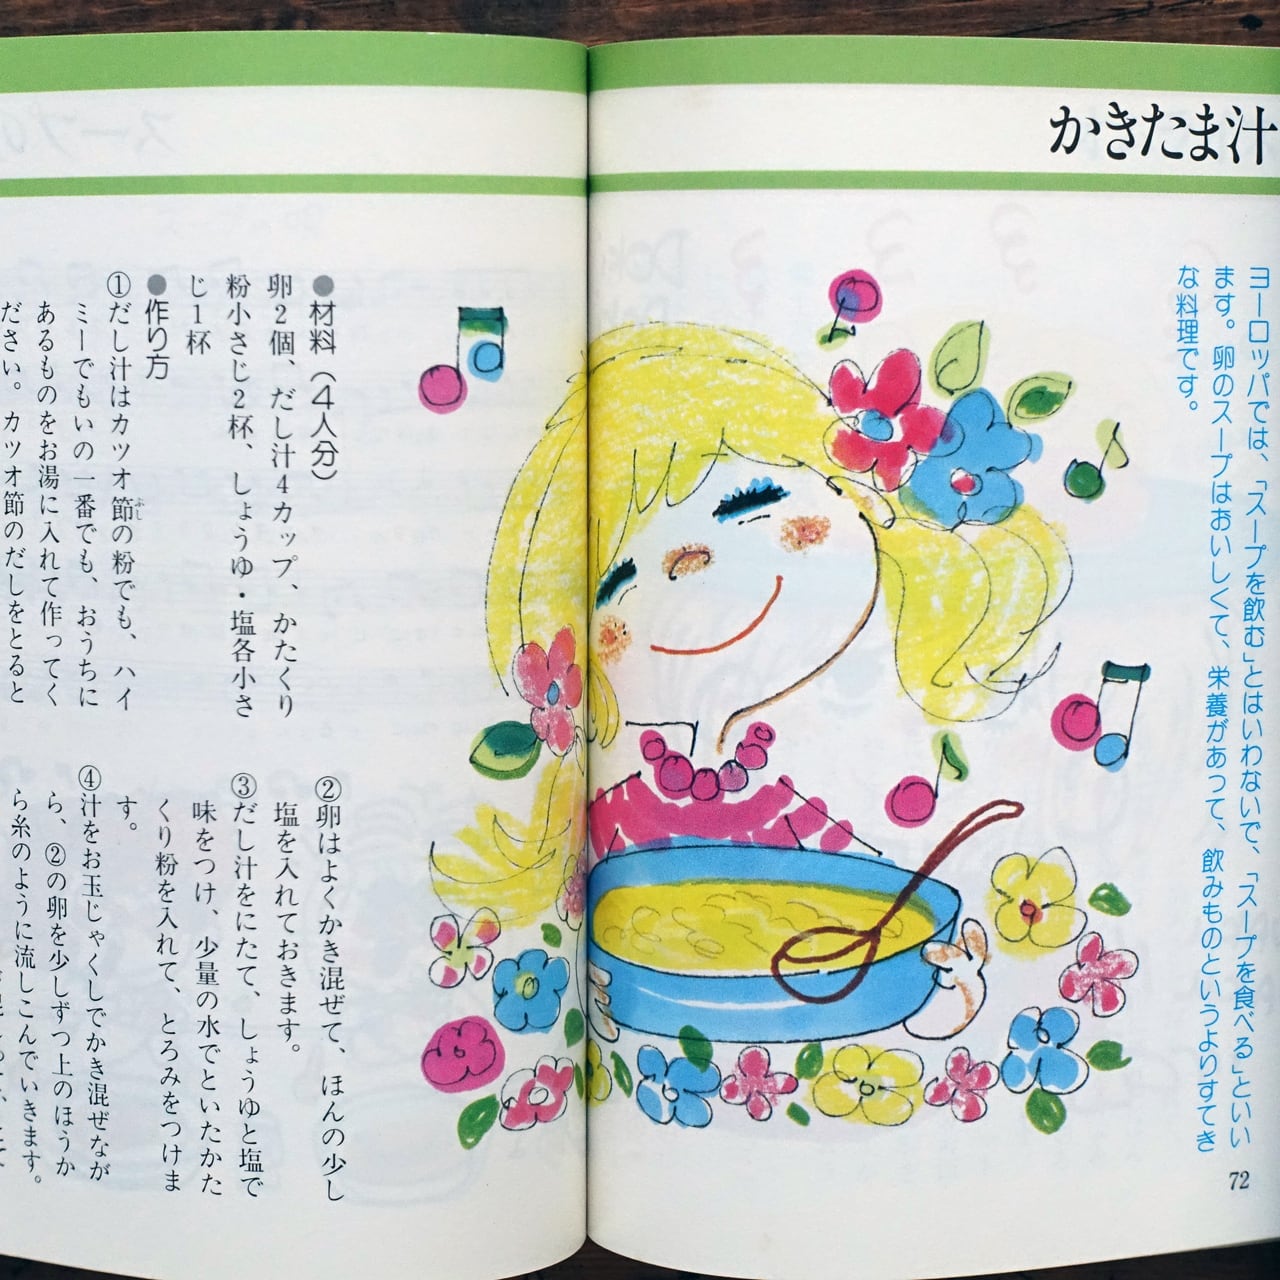 かきたま汁
ヨーロッパでは、「スープを飲む」とはいわないで、「スープを食べる」といい
ます。卵のスープはおいしくて、栄養があって、飲みものというよりすてき
な料理です。
72
●材料（4人分）
卵2個、だし汁4カップ、かたくり
粉小さじ2杯、しょうゆ・塩各小さ
じ1杯
●作り方
①だし汁はカツオ節の粉でも、ハイ
ぶし
ミーでもいの一番でも、おうちに
あるものをお湯に入れて作ってく
ださい。カツオ節のだしをとると
②卵はよくかき混ぜて、ほんの少し
塩を入れておきます。
③だし汁をにたて、しょうゆと塩で
味をつけ、少量の水でといたかた
くり粉を入れて、とろみをつけま
す。
④汁をお玉じゃくしでかき混ぜなが
ら、②の卵を少しずつ上のほうか
ら糸のように流しこんでいきます。